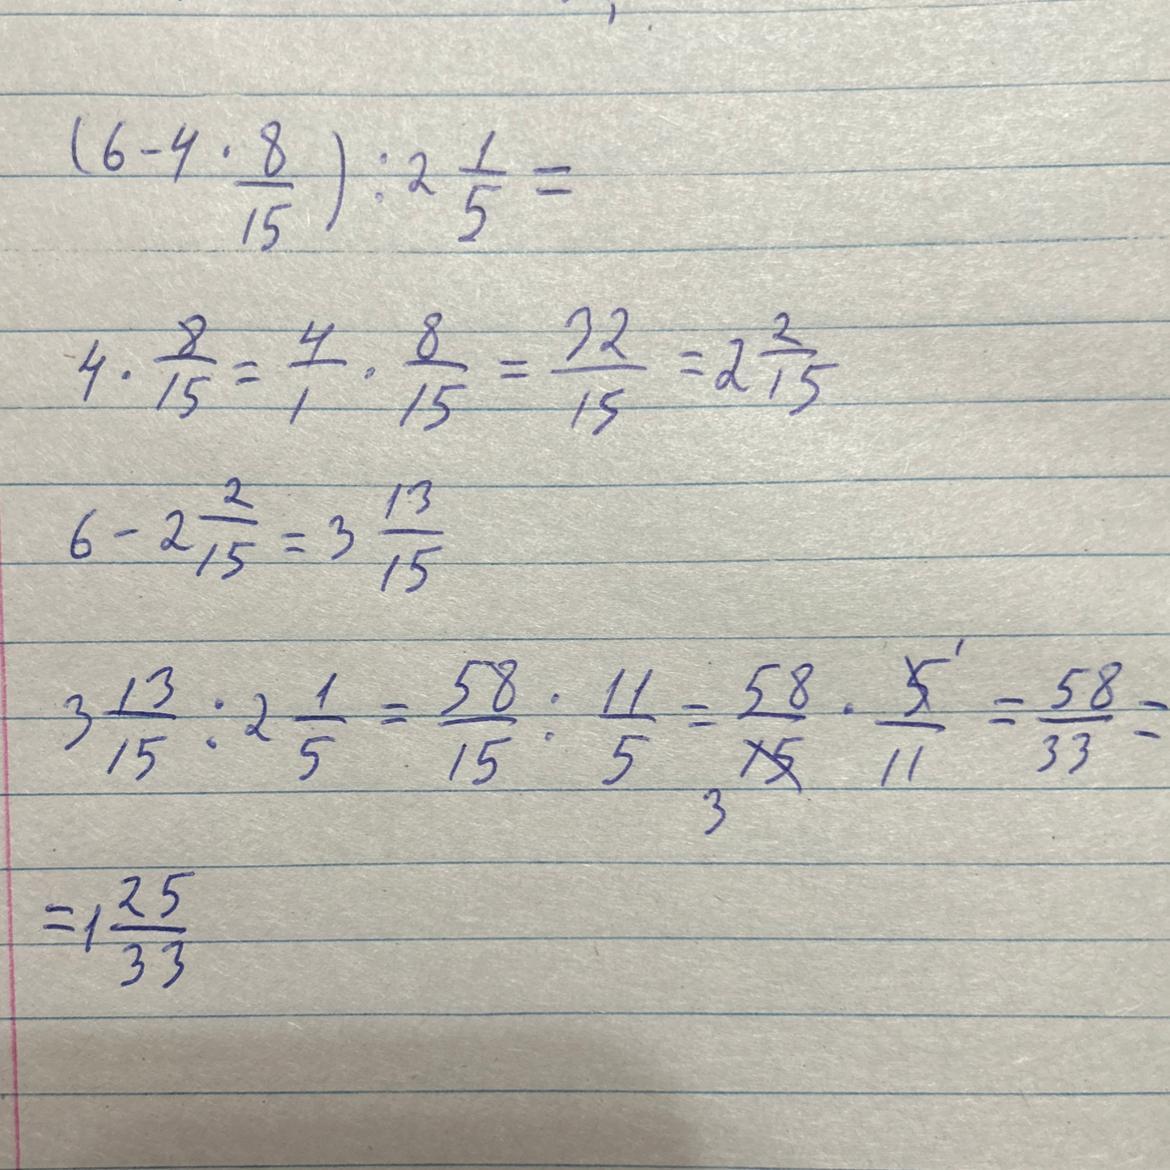 (6-4·8/15):2 1/5=
4·8/15=4/1·8/15=32/15=2 2/15
6-2 2/15=3 13/15
3 13/15:2 1/5=58/15:11/5=58/15 3·5/11 1=58/33=
=1 25/33